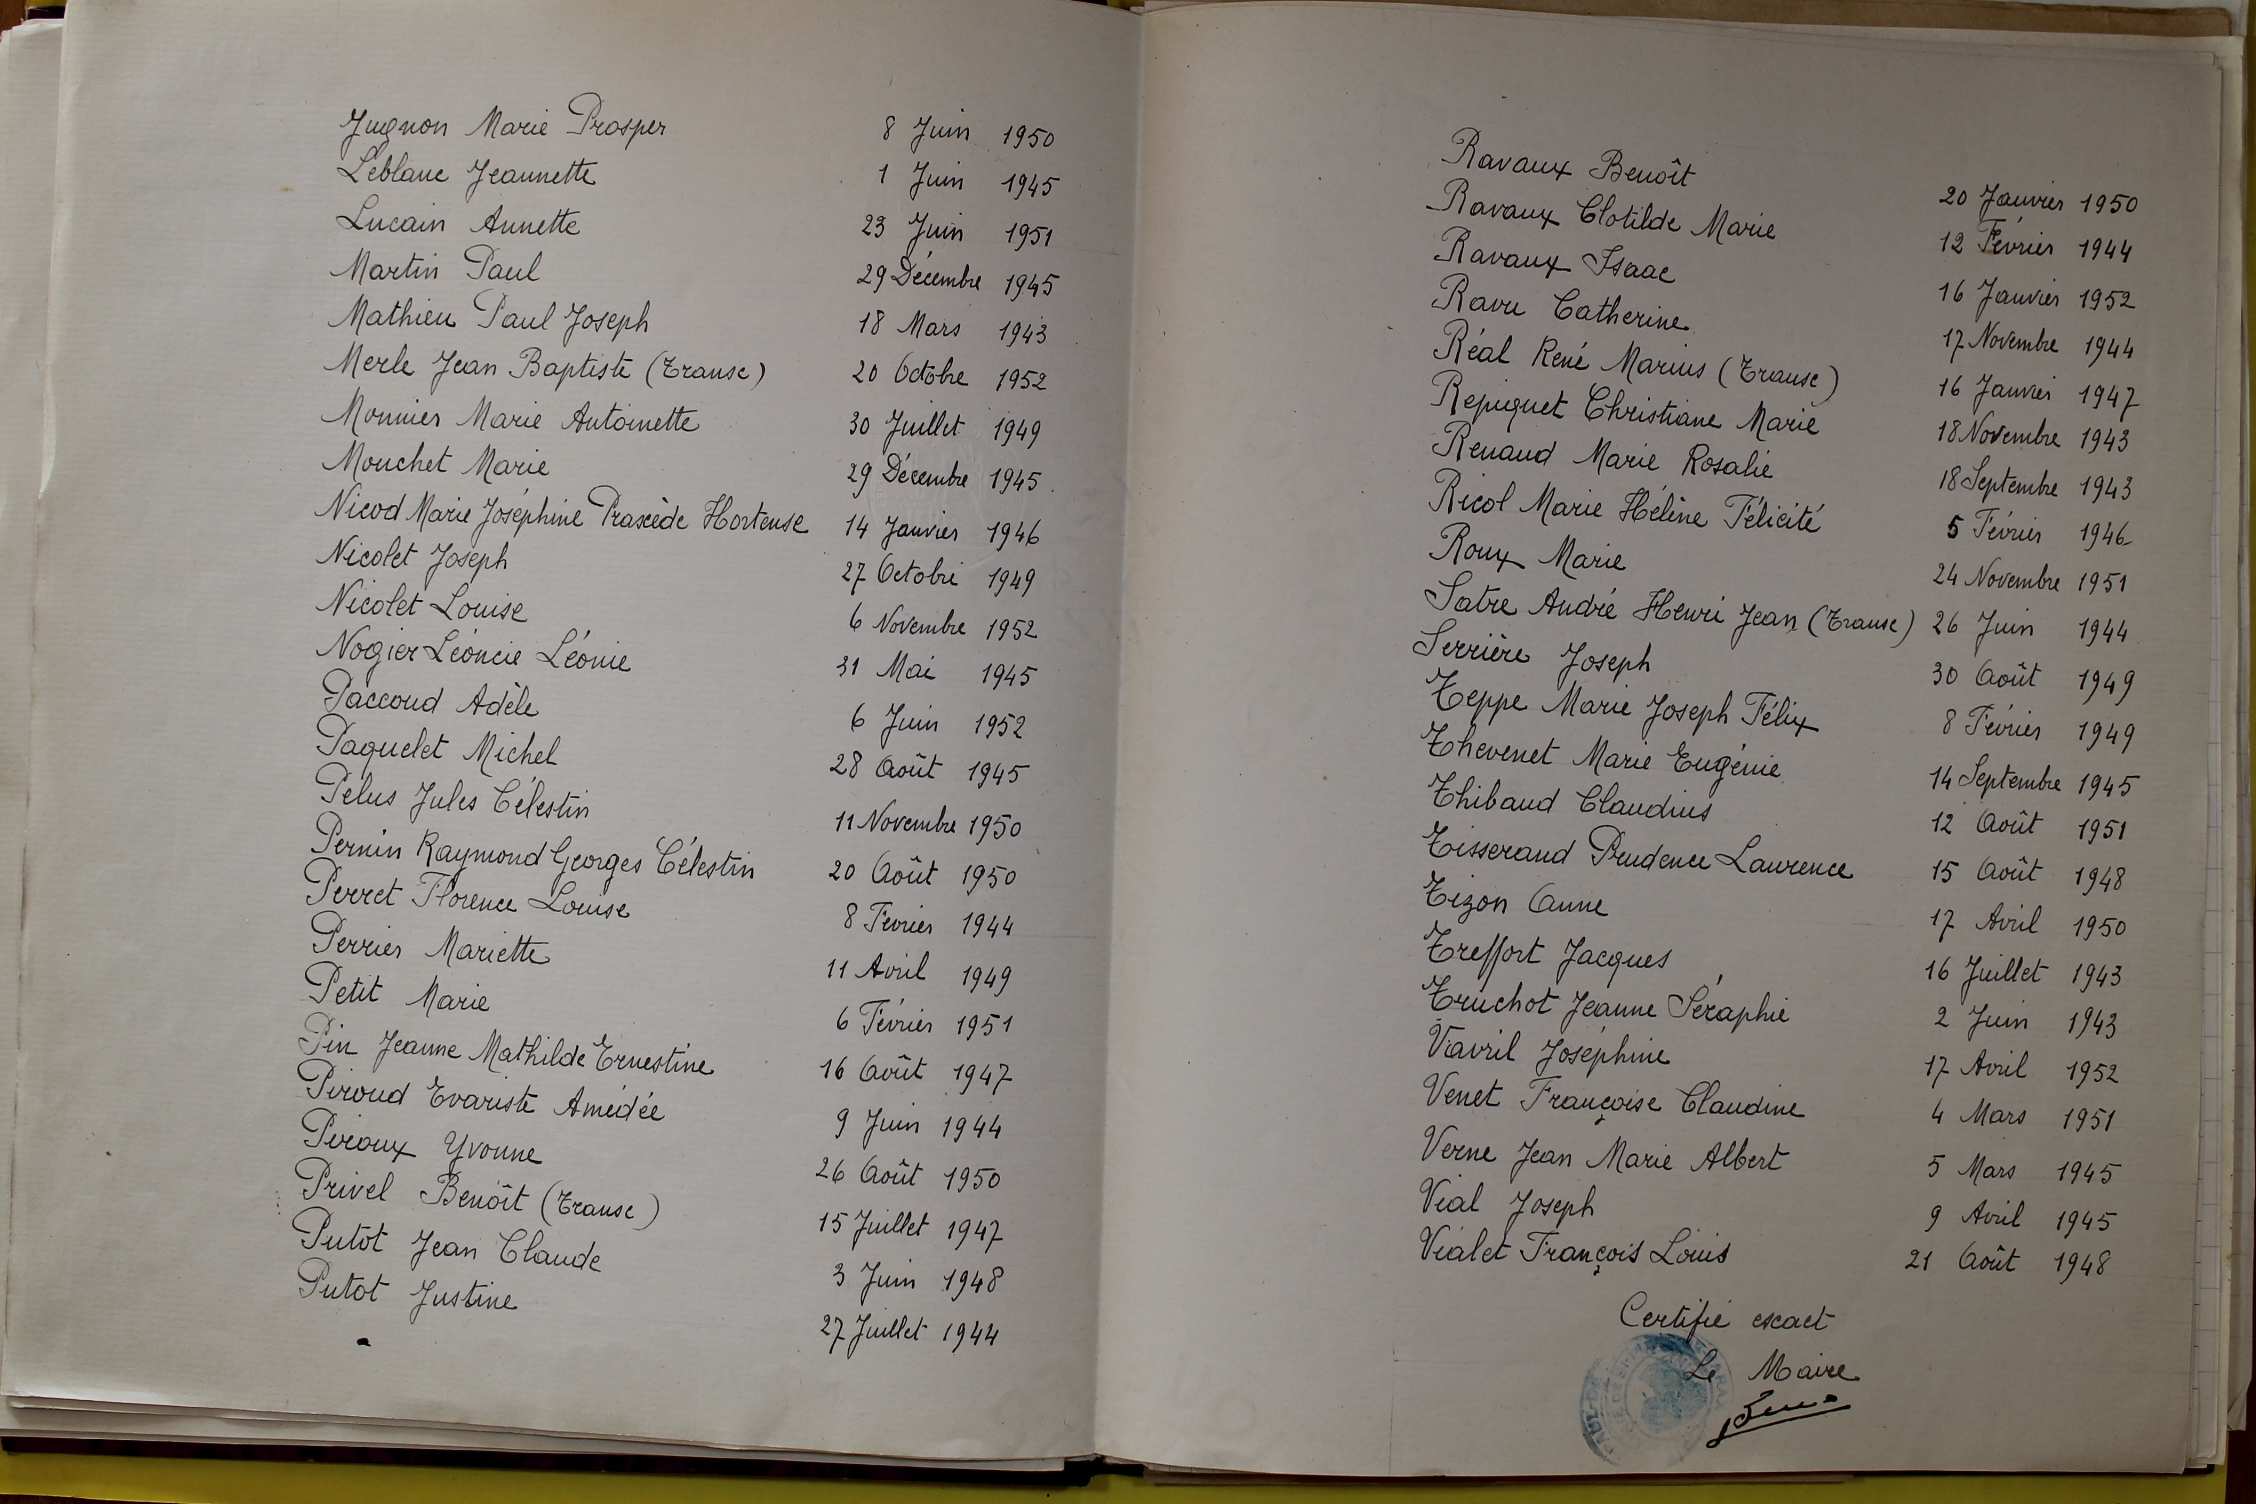 Jugnon Marie Prosper 8 Juin 1950
Leblanc Jeannette 1 Juin 1945
Lucain Annette 23 Juin 1951
Martin Paul 29 Décembre 1945
Mathieu Paul Joseph 18 Mars 1943
Merle Jean Baptiste (Transc) 20 Octobre 1952
Monnier Marie Antoinette 30 Juillet 1949
Mouchet Marie 29 Décembre 1945
Nicod Marie Joséphine Praxède Hortense 14 Janvier 1946
Nicolet Joseph 27 Octobre 1949
Nicolet Louise 6 Novembre 1952
Nogier Léoncie Léonie 31 Mai 1945
Paccoud Adèle 6 Juin 1952
Paquelet Michel 28 Août 1945
Pelus Jules Célestin 11 Novembre 1950
Pernin Raymond Georges Célestin 20 Août 1950
Perret Florence Louise 8 Février 1944
Perrier Mariette 11 Avril 1949
Petit Marie 6 Février 1951
Pin Jeanne Mathilde Ernestine 16 Août 1947
Piroud Evariste Amédée 9 Juin 1944
Piroux Yvonne 26 Août 1950
Privel Benoît (Transc) 15 Juillet 1947
Putot Jean Claude 3 Juin 1948
Putot Justine 27 Juillet 1944
Ravaux Benoît 20 Janvier 1950
Ravaux Clotilde Marie 12 Février 1944
Ravaux Isaac 16 Janvier 1952
Ravu Catherine 17 Novembre 1944
Réal René Marius (Transc) 16 Janvier 1947
Repiquet Christiane Marie 18 Novembre 1943
Renaud Marie Rosalie 18 Septembre 1943
Ricol Marie Hélène Félicité 5 Février 1946
Roux Marie 24 Novembre 1951
Satre André Henri Jean (Transc) 26 Juin 1944
Serrière Joseph 30 Août 1949
Teppe Marie Joseph Félix 8 Février 1949
Thevenet Marie Eugénie 14 Septembre 1945
Thibaud Claudius 12 Août 1951
Tisserand Prudence Laurence 15 Août 1948
Tizon Anne 17 Avril 1950
Treffort Jacques 16 Juillet 1943
Truchot Jeanne Séraphie 2 Juin 1943
Vavril Joséphine 17 Avril 1952
Venet Françoise Claudine 4 Mars 1951
Verne Jean Marie Albert 5 Mars 1945
Vial Joseph 9 Avril 1945
Vialet François Louis 21 Août 1948
Certifié exact
Le Maire